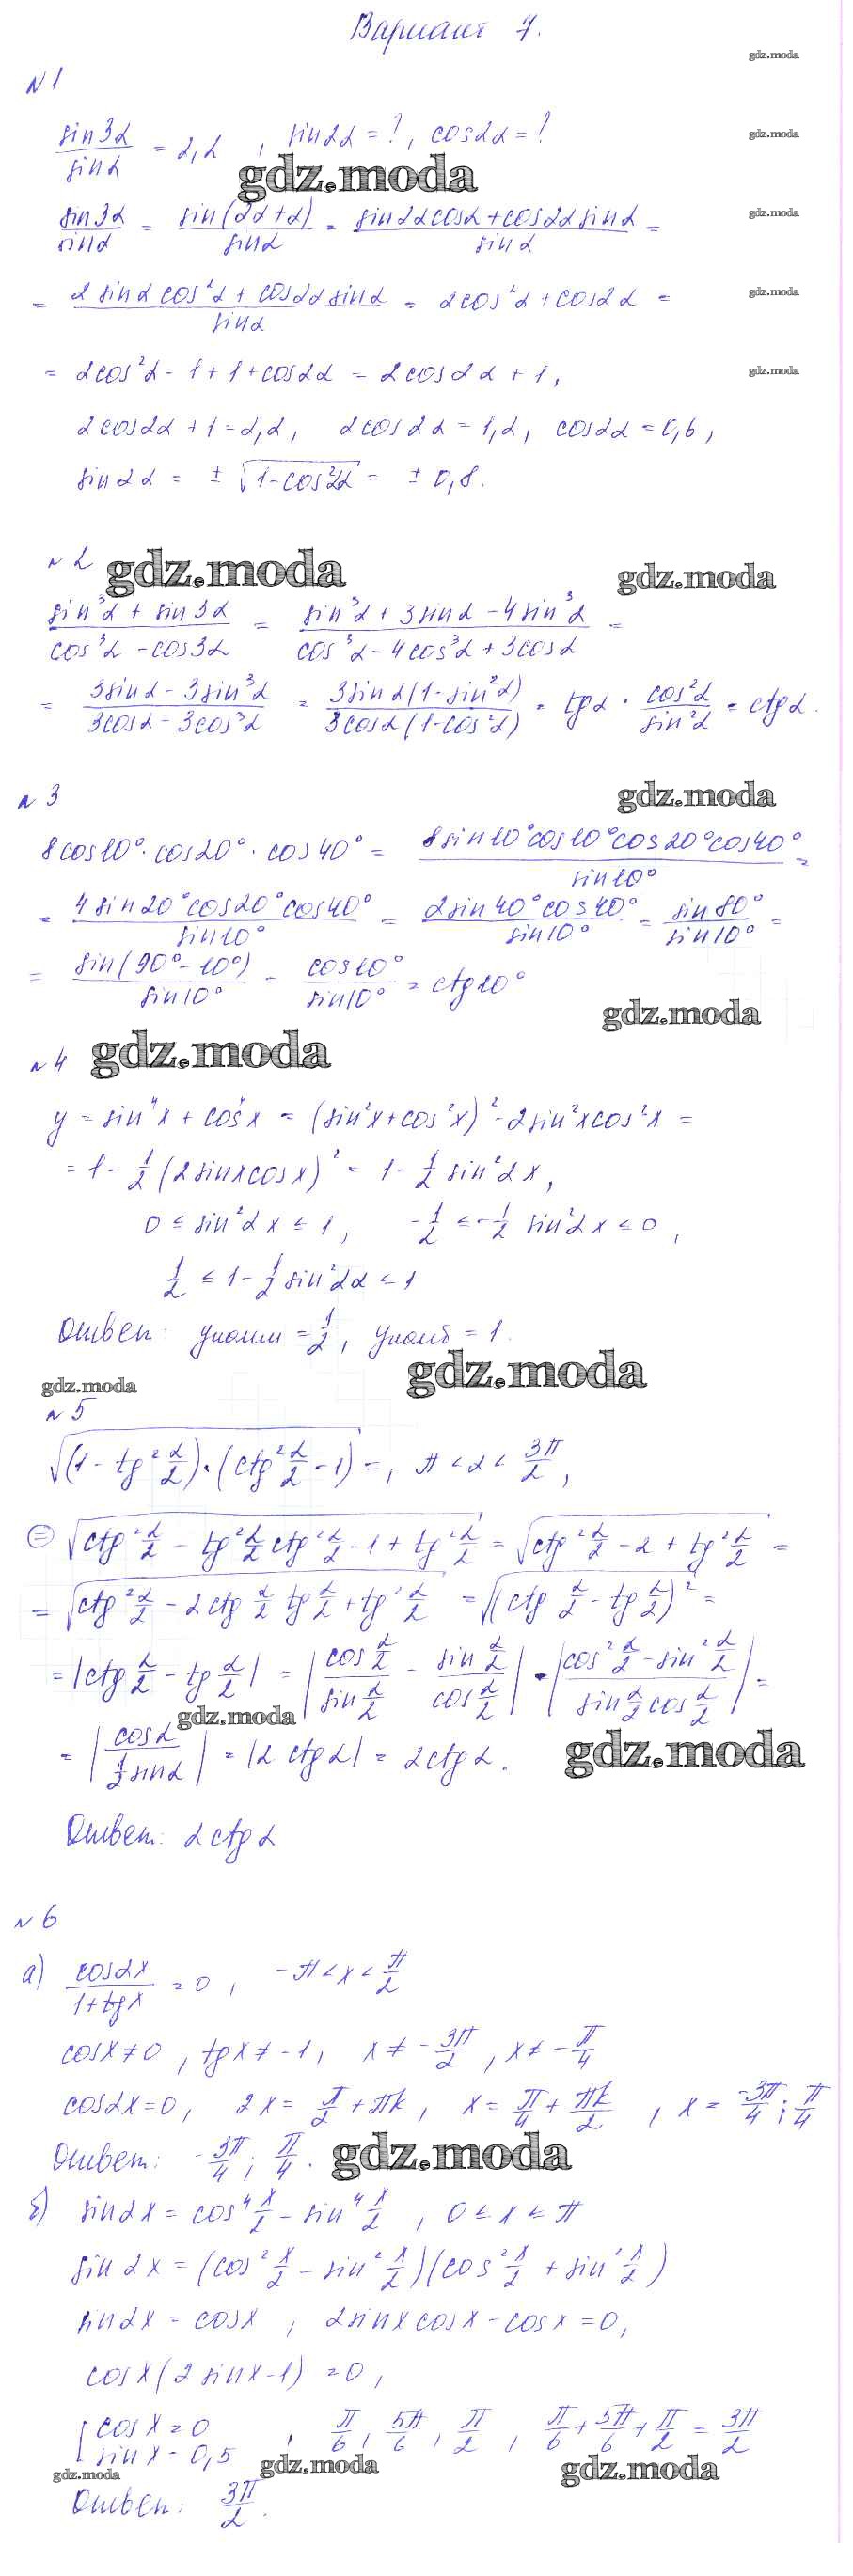 Вариант 7.
gdz.moda
№1
sin3α/sinα = 2,2 , sin2α = ? , cos2α = ?
gdz.moda
gdz.moda
sin3α/sinα = sin(2α+α)/sinα = (sin2αcosα+cos2αsinα)/sinα =
gdz.moda
= (2sinαcos²α + cos2αsinα)/sinα = 2cos²α + cos2α =
gdz.moda
= 2cos²α - 1 + 1 + cos2α = 2cos2α + 1,
gdz.moda
2cos2α + 1 = 2,2, 2cos2α = 1,2, cos2α = 0,6,
sin2α = ± √(1-cos²2α) = ± 0,8.
№2
gdz.moda
gdz.moda
(sin³α + sin3α)/(cos³α - cos3α) = (sin³α + 3sinα - 4sin³α)/(cos³α - 4cos³α + 3cosα) =
= (3sinα - 3sin³α)/(3cosα - 3cos³α) = 3sinα(1-sin²α)/3cosα(1-cos²α) = tgα · cos²α/sin²α = ctgα.
№3
gdz.moda
8cos10°·cos20°·cos40° = 8sin10°cos10°cos20°cos40°/sin10° =
= 4sin20°cos20°cos40°/sin10° = 2sin40°cos40°/sin10° = sin80°/sin10° =
= sin(90°-10°)/sin10° = cos10°/sin10° = ctg10°
gdz.moda
№4
gdz.moda
y = sin⁴x + cos⁴x = (sin²x+cos²x)² - 2sin²xcos²x =
= 1 - 1/2 (2sinxcosx)² = 1 - 1/2 sin²2x,
0 ≤ sin²2x ≤ 1, -1/2 ≤ -1/2 sin²2x ≤ 0,
1/2 ≤ 1 - 1/2 sin²2α ≤ 1
Ответ: yнаим = 1/2, yнаиб = 1.
gdz.moda
gdz.moda
№5
√((1 - tg² α/2)·(ctg² α/2 - 1)) =, π < α < 3π/2,
= √(ctg² α/2 - tg² α/2 ctg² α/2 - 1 + tg² α/2) = √(ctg² α/2 - 2 + tg² α/2) =
= √(ctg² α/2 - 2ctg α/2 tg α/2 + tg² α/2) = √((ctg α/2 - tg α/2)²) =
= |ctg α/2 - tg α/2| = |cos α/2 / sin α/2 - sin α/2 / cos α/2| = |(cos² α/2 - sin² α/2)/(sin α/2 cos α/2)| =
gdz.moda
= |cosα/(1/2 sinα)| = |2ctgα| = 2ctgα.
gdz.moda
Ответ: 2ctgα
№6
а) cos2x/(1+tgx) = 0, -π < x < π/2
cosx ≠ 0, tgx ≠ -1, x ≠ -3π/2, x ≠ -π/4
cos2x = 0, 2x = π/2 + πk, x = π/4 + πk/2, x = -3π/4; π/4
Ответ: -3π/4; π/4.
gdz.moda
б) sin2x = cos⁴ x/2 - sin⁴ x/2, 0 ≤ x ≤ π
sin2x = (cos² x/2 - sin² x/2)(cos² x/2 + sin² x/2)
sin2x = cosx, 2sinxcosx - cosx = 0,
cosx(2sinx-1) = 0,
[cosx = 0
sinx = 0,5 , π/6, 5π/6, π/2, π/6 + 5π/6 + π/2 = 3π/2
gdz.moda
gdz.moda
gdz.moda
Ответ: 3π/2.